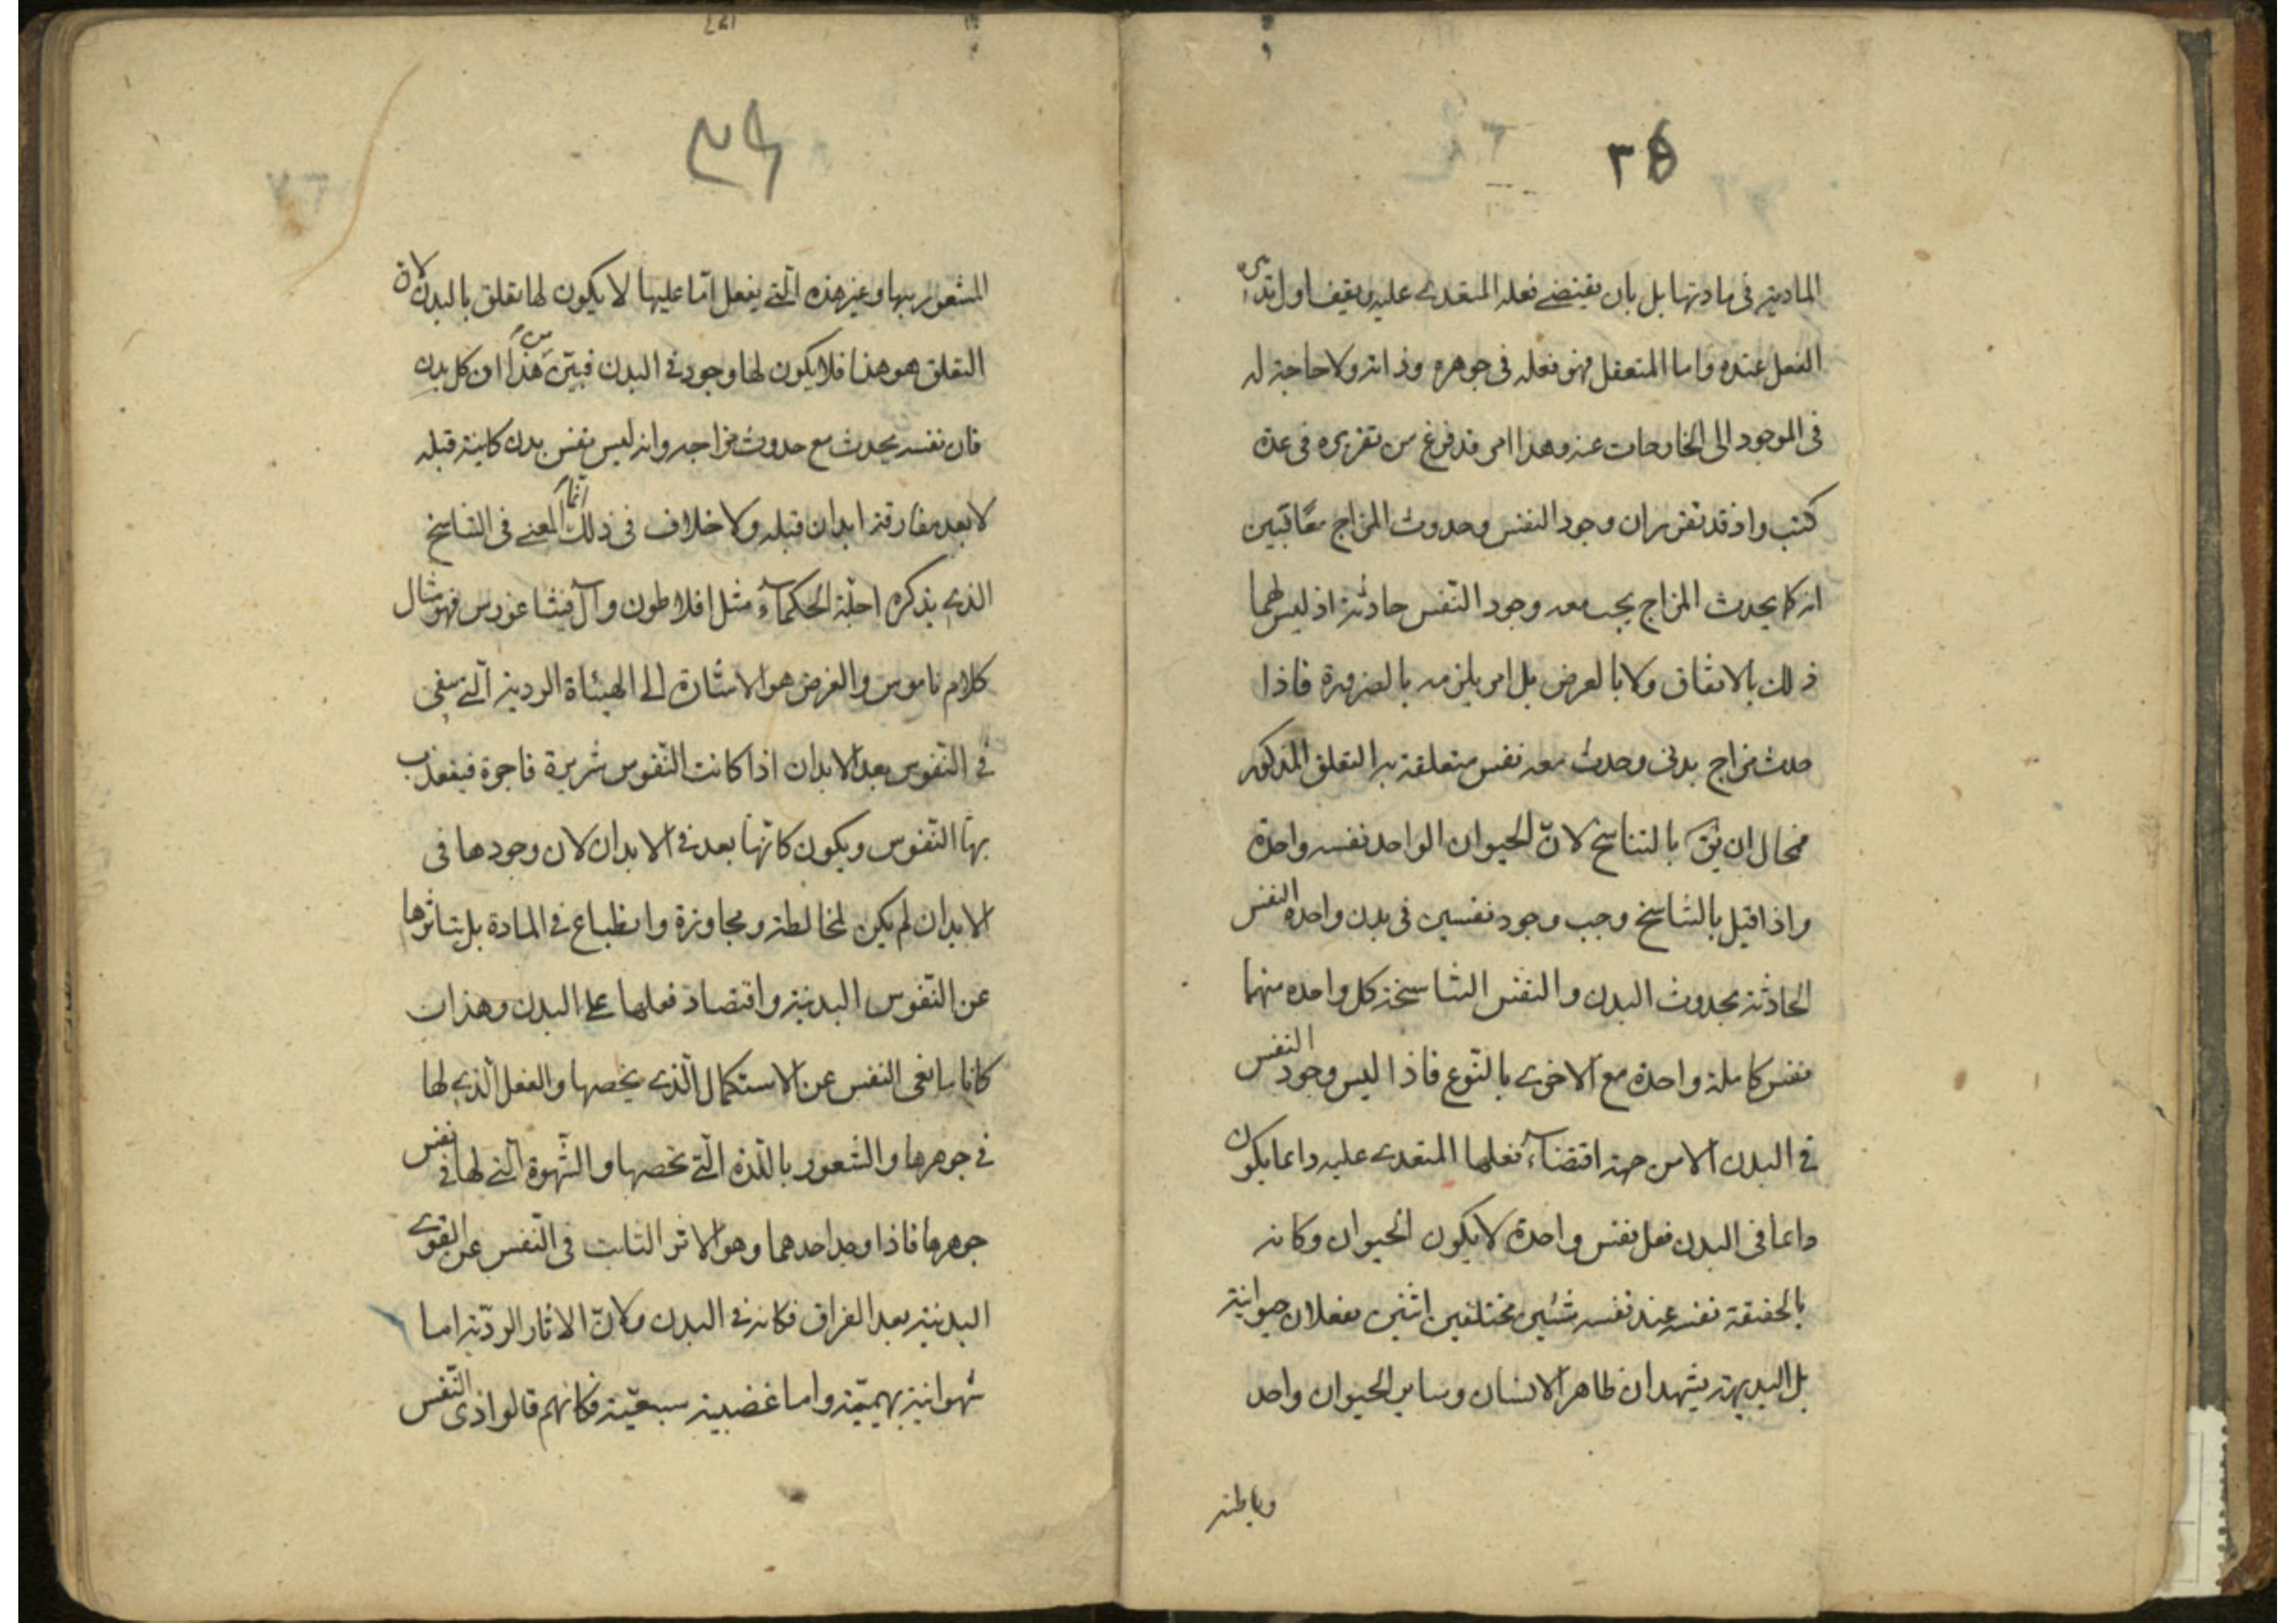 ٣٥
المادية فى مادتها بل بان يقتضى فعله المتعدى عليه يقيفا ول
الفعل عنده واما المتعقل فهو فعله فى جوهره وذاته ولا حاجة له
فى الموجود الى الخارجات عنه وهذا امر قد فرغ من تقريره فى عدة
كتب واذ قد تقرر ان وجود النفس وحدوث المزاج معًا
انه كما يحدث المزاج يجب معه وجود النفس حادثة اذ ليس لهما
ذلك بالاتفاق ولا بالعرض بل امر يلزمه بالضرورة فاذا
حدث مزاج بدنى وحدث معه نفس متعلقة به التعلق المذكور
فمحال ان يق بالتناسخ لانّ الحيوان الواحد نفسه واحدة
واذا قيل بالتناسخ وجب وجود نفسين فى بدن واحد النفس
الحادثة بحدوث البدن والنفس التناسخة كل واحده منهما
نفس كاملة واحدة مع الاخرى بالنّوع فاذا ليس وجود النفس
فى البدن الا من جهة اقتضاء فعلها المتعدى عليه دائما يكون
دائما فى البدن فعل نفس واحدة لا يكون الحيوان وكانه
بالحقيقة نفسه عند نفسه شيئين مختلفين اثنين يفعلان حيوانية
بل البديهة يشهد ان ظاهر الانسان وساير الحيوان واحد
وباطنه
المشعور بها وغير هذه الّتى يفعل امّا عليها لا يكون لها تعلق بالبدن لان
التعلق هو هذا فلا يكون لها وجود فى البدن فبيّن من هذا ان كل بدن
فان نفسه يحدث مع حدوث مزاجه وانه ليس نفس بدن كاينة قبله
لا بعد مفارقة ابدان قبله ولا خلاف فى ذلك انما المعنى فى التناسخ
الذى يذكره اجلّة الحكماء مثل افلاطون وآل فيثاغورس فهو مثال
كلام ناموس والغرض هو الاشارة الى الهيئاة الردية الّتى يبقى
فى النّفوس بعد الابدان اذا كانت النّفوس شريرة فاجرة فيعذب
بها النّفوس ويكون كانّها بعد فى الابدان لان وجودها فى
الابدان لم يكن لمخالطة ومجاوزة وانطباع فى المادة بل بتاثرها
عن النّفوس البدنية واقتصار فعلها على البدن وهذان
كانا ما نعى النفس عن الاستكمال الّذى يخصها والفعل الّذى لها
فى جوهرها والشعور باللّذة الّتى تخصها والشّهوة الّتى لها فى نفس
جوهرها فاذا وجد احدهما وهو الاثر الثابت فى النّفس عن القوى
البدنية بعد الفراق فكانه فى البدن ولانّ الاثار الرديّة اما
شهوانية بهيميّة واما غضبية سبعيّة فكانهم قالوا اذى النّفس